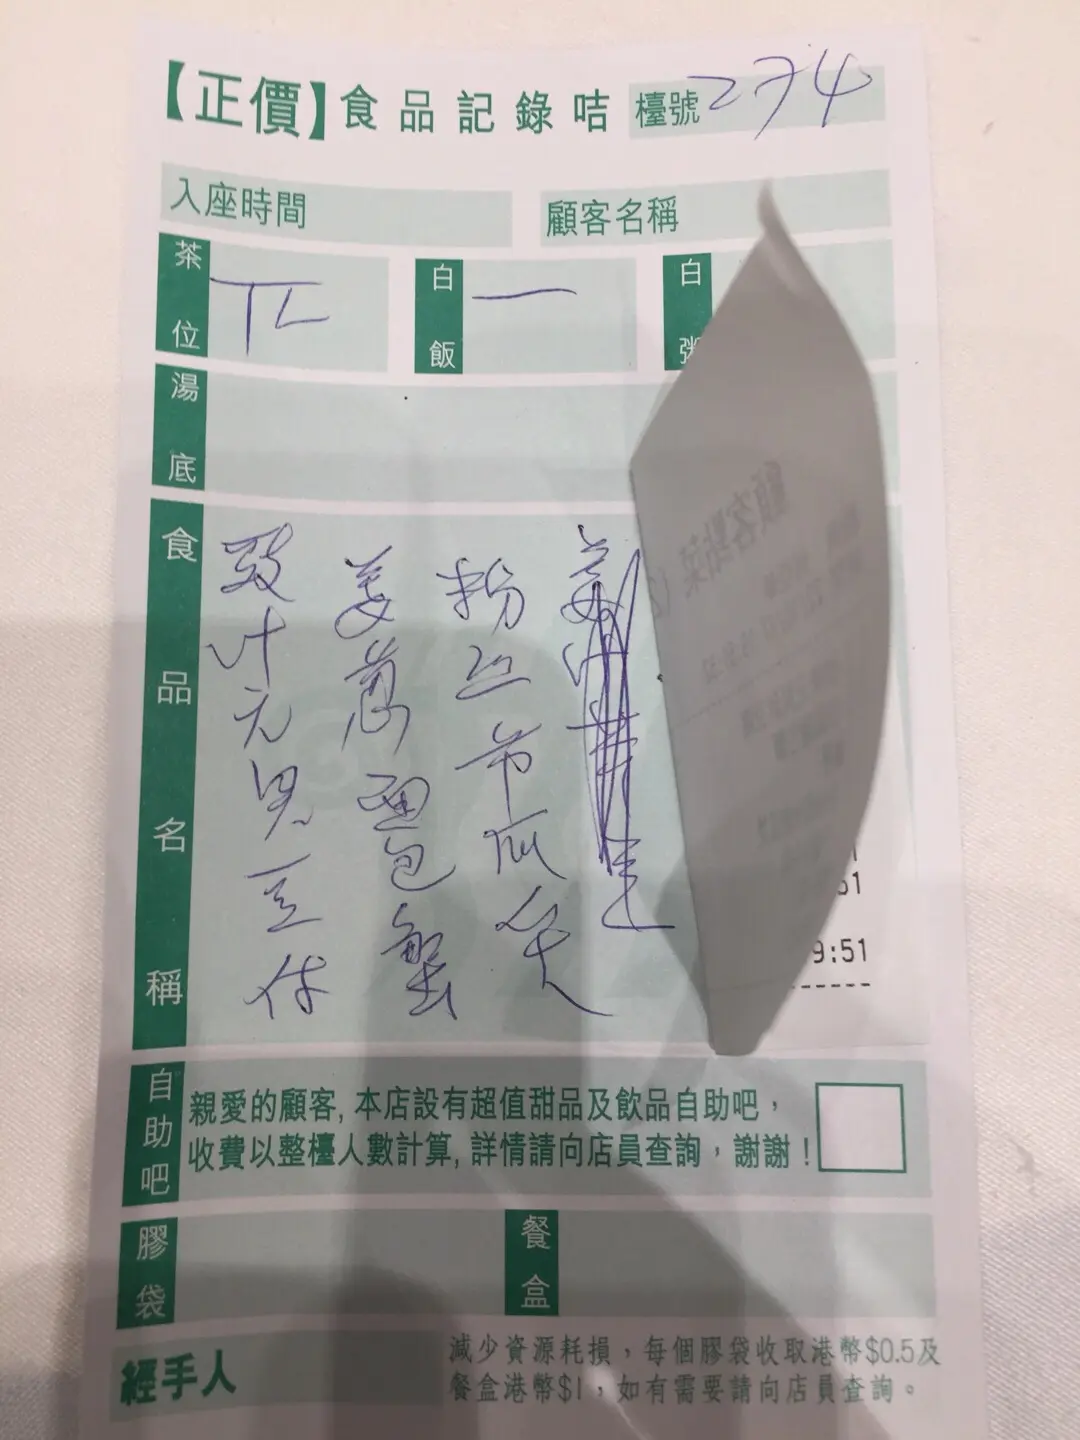 【正價】食品記錄咭 檯號 274
入座時間 顧客名稱
茶位 白飯 一 白粥
湯底
食品名稱
豉汁元貝豆付
姜葱面包蟹
粉丝
顧客點菜
51
9:51
自助吧
親愛的顧客, 本店設有超值甜品及飲品自助吧，
收費以整檯人數計算, 詳情請向店員查詢，謝謝！
膠袋 餐盒
經手人
減少資源耗損，每個膠袋收取港幣$0.5及
餐盒港幣$1，如有需要請向店員查詢。